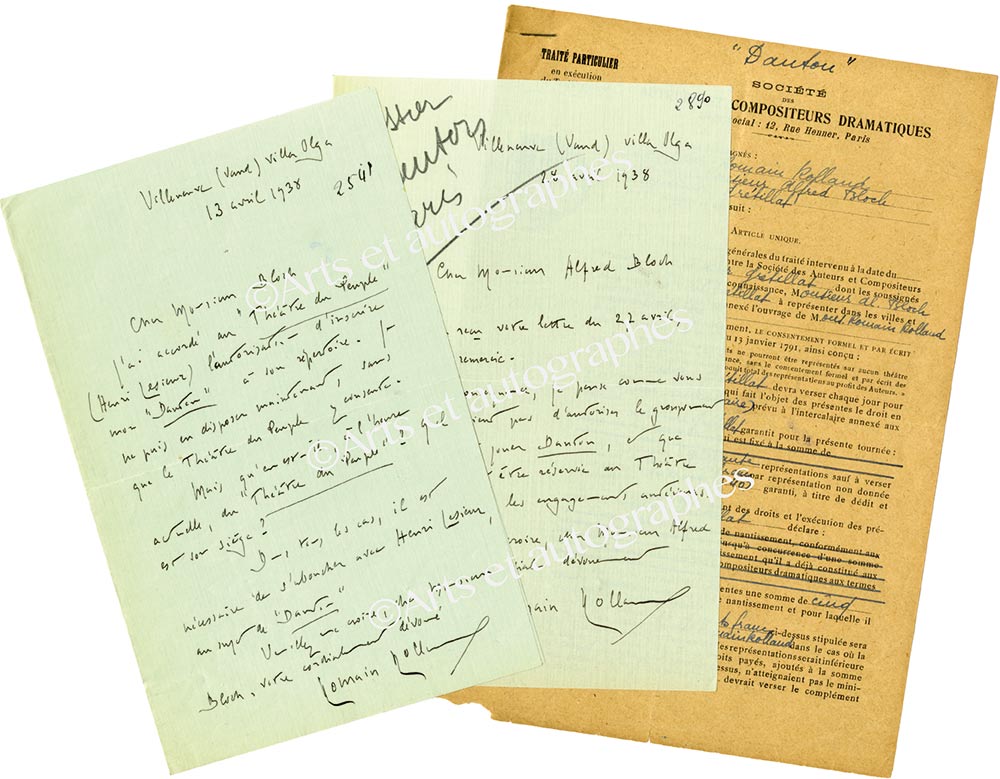 Villeneuve (Vaud) villa Olga
13 avril 1938
254¹
Cher Monsieur Bloch
J'ai accordé au "Théâtre du Peuple"
(Henri Lesieur) l'autorisation d'inscrire
mon "Danton" à son répertoire. Je
ne puis en disposer maintenant, sans
que le Théâtre du Peuple y consente.
Mais qu'en est-il, à l'heure
actuelle, du "Théâtre du Peuple"? où
est son siège?
Dans tous les cas, il est
nécessaire de s'aboucher avec Henri Lesieur,
au sujet de "Danton"
Veuillez me croire, cher Monsieur
Bloch, votre cordialement dévoué
Romain Rolland
2890
Villeneuve (Vaud) villa Olga
28 avril 1938
Cher Monsieur Alfred Bloch
votre lettre du 27 avril,
remercie.
je pense comme vous
pas d'autoriser le groupement
jouer Danton, et que
être réservé au Théâtre
les engagements antérieurs
croire, cher Monsieur Alfred
dévouement
Romain Rolland
"Danton"
TRAITÉ PARTICULIER
en exécution
SOCIÉTÉ
DES
COMPOSITEURS DRAMATIQUES
social : 12, Rue Henner, Paris
GNÉS :
Romain Rolland
Monsieur Alfred Bloch
Frétillat
suit :
ARTICLE UNIQUE.
générales du traité intervenu à la date du
entre la Société des Auteurs et Compositeurs
Frétillat dont les soussignés
connaissance, Monsieur al. Bloch
à représenter dans les villes et
nexé l'ouvrage de Monsr Romain Rolland
ment, LE CONSENTEMENT FORMEL ET PAR ÉCRIT
u 13 janvier 1791, ainsi conçu :
ts ne pourront être représentés sur aucun théâtre
ance, sans le consentement formel et par écrit des
duit total des représentations au profit des Auteurs. »
devra verser chaque jour pour
qui fait l'objet des présentes le droit en
prévu à l'intercalaire annexé aux
garantit pour la présente tournée :
ui est fixé à la somme de
représentations sauf à verser
par représentation non donnée
garanti, à titre de dédit et
nt des droits et l'exécution des pré-
déclare :
de nantissement, conformément aux
usqu'à concurrence d'une somme
ssement qu'il a déjà constitué aux
ompositeurs dramatiques aux termes
entes une somme de cinq
nantissement et pour laquelle il
francs
i-dessus stipulée sera
dans le cas où la
es représentations serait inférieure
droits payés, ajoutés à la somme
essus, n'atteignaient pas le mini-
devrait verser le complément
©Arts et autographes
©Arts et autographes
©Arts et autographes